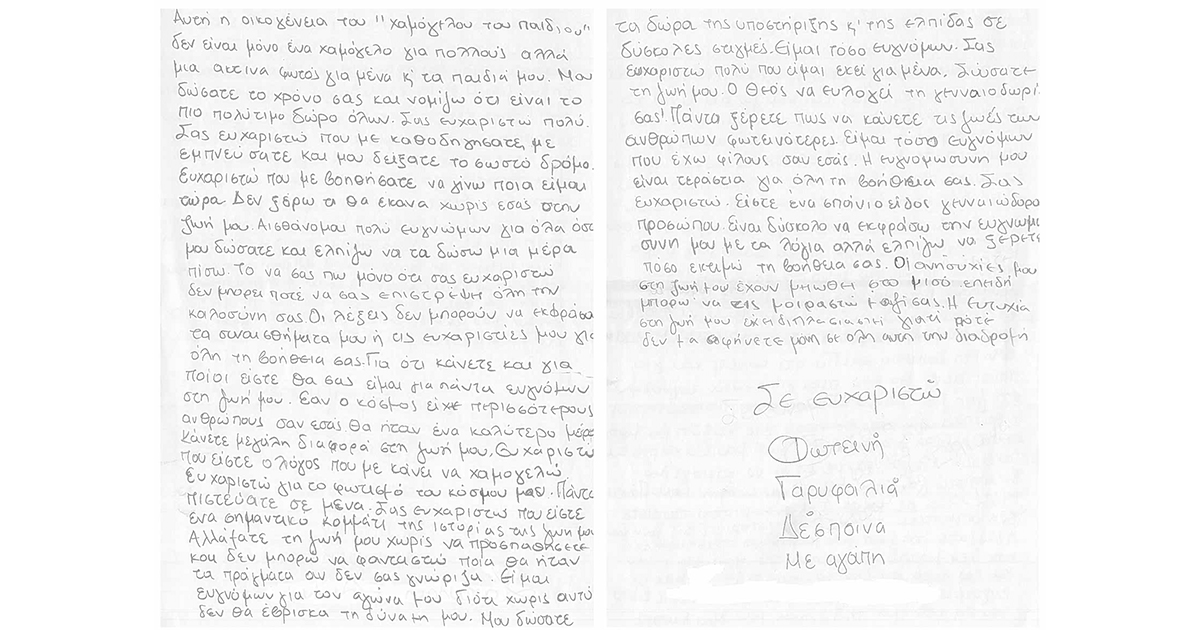 Αυτή η οικογένεια του "χαμόγελου του παιδιού"
δεν είναι μόνο ένα χαμόγελο για πολλούς αλλά
μια ακτινα φωτός για μένα κ' τα παιδιά μου. Μου
δώσατε το χρόνο σας και νομίζω ότι είναι το
πιο πολύτιμο δώρο όλων. Σας ευχαριστώ πολύ.
Σας ευχαριστώ που με καθοδηγησατε, με
εμπνεύσατε και μου δείξατε το σωστό δρόμο.
Ευχαριστώ που με βοηθήσατε να γίνω ποια είμαι
τώρα. Δεν ξέρω τι θα έκανα χωρίς εσάς στην
ζωή μου. Αισθάνομαι πολύ ευγνώμων για όλα όσα
μου δώσατε και ελπίζω να τα δώσω μια μέρα
πίσω. Το να σας πω μόνο ότι σας ευχαριστώ
δεν μπορεί ποτέ να σας επιστρέψη όλη την
καλοσύνη σας. Οι λέξεις δεν μπορούν να εκφράσουν
τα συναισθήματα μου ή τις ευχαριστίες μου για
όλη τη βοήθεια σας. Για ότι κάνετε και για
ποίοι είστε θα σας είμαι για πάντα ευγνόμων
στη ζωή μου. Εαν ο κόσμος είχε περισσότερους
ανθρώπους σαν εσάς θα ήταν ένα καλύτερο μέρος
Κάνετε μεγάλη διαφορά στη ζωή μου. Ευχαριστώ
που είστε ο λόγος που με κάνει να χαμογελώ.
Ευχαριστώ για το φωτισμό του κόσμου μου. Πάντα
πιστεύατε σε μένα. Σας ευχαριστώ που είστε
ένα σημαντικό κομμάτι της ιστορίας της ζωή μου
Αλλάξατε τη ζωή μου χωρίς να προσπαθήσετε
και δεν μπορώ να φανταστώ ποια θα ήταν
τα πράγματα αν δεν σας γνώριζα. Είμαι
ευγνόμων για τον αγώνα μου διότι χωρίς αυτό
δεν θα έβρισκα τη δύναμη μου. Μου δώσατε
τα δώρα της υποστήριξης κ' της ελπίδας σε
δύσκολες στιγμές. Είμαι τόσο ευγνόμων. Σας
ευχαριστώ πολύ που είμαι εκεί για μένα. Σώσατε
τη ζωή μου. Ο Θεός να ευλογεί τη γενναιοδωρί
σας! Πάντα ξέρετε πως να κάνετε τις ζωές των
ανθρώπων φωτεινότερες. Είμαι τόσο ευγνόμων
που έχω φίλους σαν εσάς. Η ευγνομωσυνη μου
είναι τεράστια για όλη τη βοήθεια σας. Σας
ευχαριστώ. Είστε ένα σπάνιο είδος γενναιώδορο
προσώπου. Είναι δύσκολο να εκφράσω την ευγνωμο
συνη μου με τα λόγια αλλά ελπίζω να ξέρετε
πόσο εκτιμώ τη βοήθεια σας. Οι ανησυχίες μου
στη ζωή μου έχουν μειωθεί στο μισό επειδή
μπορώ να τις μοιραστώ μαζί σας. Η Ευτυχία
στη ζωή μου έχει διπλασιαστεί γιατί ποτέ
δεν με αφήνετε μόνη σε όλη αυτή την διαδρομή
Σε ευχαριστώ
Φωτεινή
Γαρυφαλιά
Δέσποινα
Με αγάπη